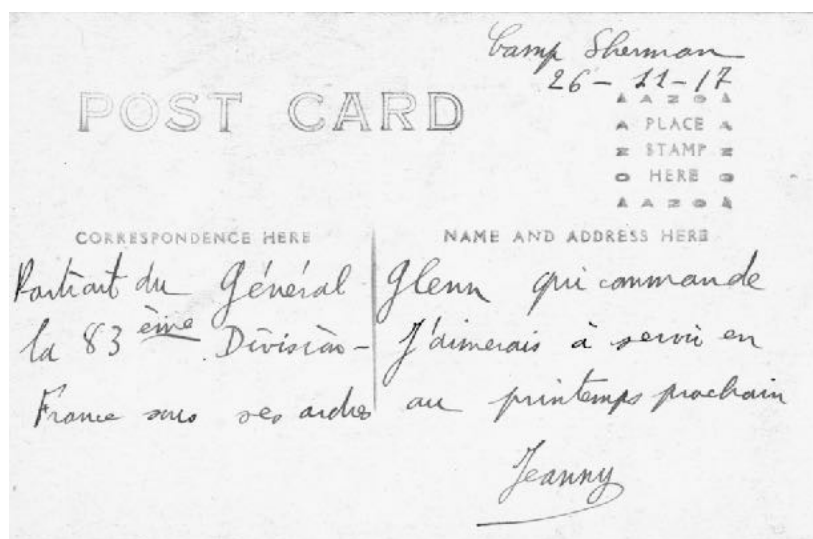 Camp Sherman
26-11-17
POST CARD
AZOA
PLACE
STAMP
HERE
AZOA
CORRESPONDENCE HERE
NAME AND ADDRESS HERE
Portrait du Général Glenn qui commande
la 83 ème Division - J'aimerais à servir en
France sous ses ordres au printemps prochain
Jeanny